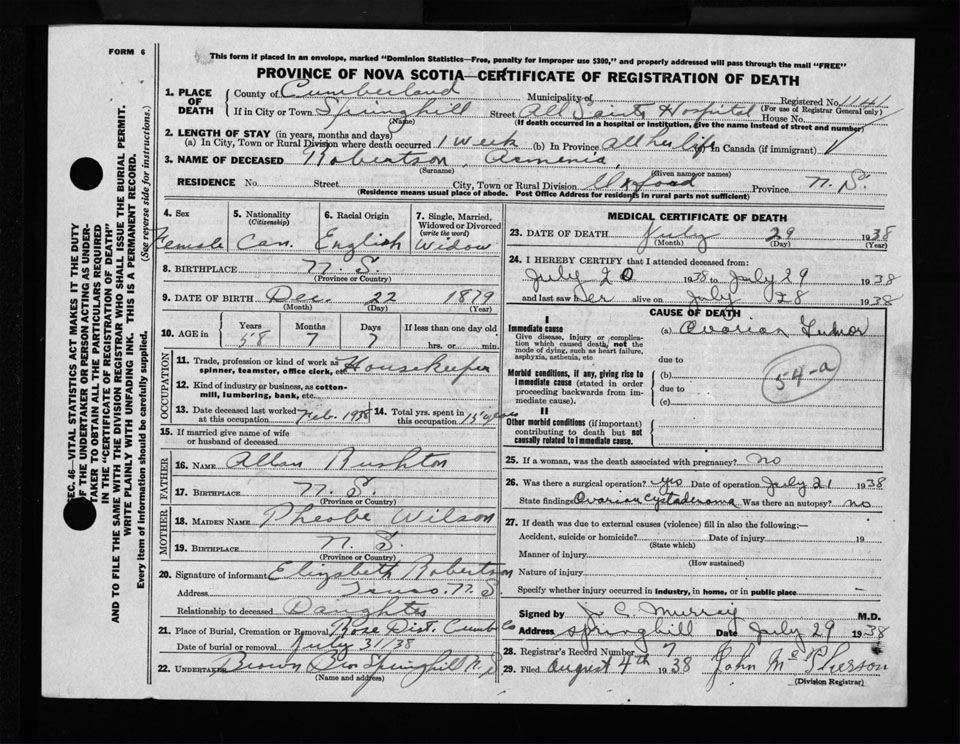 FORM 6
This form if placed in an envelope, marked "Dominion Statistics—Free, penalty for improper use $300," and properly addressed will pass through the mail "FREE"
PROVINCE OF NOVA SCOTIA—CERTIFICATE OF REGISTRATION OF DEATH
SEC. 46—VITAL STATISTICS ACT MAKES IT THE DUTY
OF THE UNDERTAKER OR PERSON ACTING AS UNDER-
TAKER TO OBTAIN ALL THE PARTICULARS REQUIRED
IN THE "CERTIFICATE OF REGISTRATION OF DEATH"
AND TO FILE THE SAME WITH THE DIVISION REGISTRAR WHO SHALL ISSUE THE BURIAL PERMIT.
WRITE PLAINLY WITH UNFADING INK. THIS IS A PERMANENT RECORD.
Every item of information should be carefully supplied. (See reverse side for instructions.)
1. PLACE OF DEATH
County of Cumberland Municipality of Registered No. 1141
(For use of Registrar General only)
If in City or Town Springhill Street All Saints Hospital House No.
(Name) (If death occurred in a hospital or institution, give the name instead of street and number)
2. LENGTH OF STAY (in years, months and days)
(a) In City, Town or Rural Division where death occurred 1 week (b) In Province All her life In Canada (if immigrant)
3. NAME OF DECEASED Robertson, Armenia
(Surname) (Given name or names)
RESIDENCE No. Street City, Town or Rural Division Oxford Province N.S.
(Residence means usual place of abode. Post Office Address for residents in rural parts not sufficient)
4. Sex
Female
5. Nationality
(Citizenship)
Can.
6. Racial Origin
English
7. Single, Married,
Widowed or Divorced
(write the word)
Widow
8. BIRTHPLACE N.S.
(Province or Country)
9. DATE OF BIRTH Dec. 22 1879
(Month) (Day) (Year)
10. AGE in
Years Months Days If less than one day old
58 7 7 hrs. or min.
OCCUPATION
11. Trade, profession or kind of work as
spinner, teamster, office clerk, etc. Housekeeper
12. Kind of industry or business, as cotton-
mill, lumbering, bank, etc.
13. Date deceased last worked
at this occupation Feb. 1938
14. Total yrs. spent in
this occupation 15 years
15. If married give name of wife
or husband of deceased
FATHER
16. NAME Allan Rushton
17. BIRTHPLACE N.S.
(Province or Country)
MOTHER
18. MAIDEN NAME Pheobe Wilson
19. BIRTHPLACE N.S.
(Province or Country)
20. Signature of informant Elizabeth Robertson
Address Truro. N.S.
Relationship to deceased Daughter
21. Place of Burial, Cremation or Removal Rose Dist. Cumb Co
Date of burial or removal July 31/38
22. UNDERTAKER Brown Bros Springhill N.S.
(Name and address)
MEDICAL CERTIFICATE OF DEATH
23. DATE OF DEATH July 29 1938
(Month) (Day) (Year)
24. I HEREBY CERTIFY that I attended deceased from:
July 20 1938 to July 29 1938
and last saw her alive on July 28 1938
CAUSE OF DEATH
I
Immediate cause
Give disease, injury or complica-
tion which caused death, not the
mode of dying, such as heart failure,
asphyxia, asthenia, etc
(a) Ovarian Tumor
due to
Morbid conditions, if any, giving rise to
immediate cause (stated in order
proceeding backwards from im-
mediate cause).
(b)
due to
(c)
54-a
II
Other morbid conditions (if important)
contributing to death but not
causally related to immediate cause.
25. If a woman, was the death associated with pregnancy? no
26. Was there a surgical operation? yes Date of operation July 21 1938
State findings Ovarian cystaderoma Was there an autopsy? no
27. If death was due to external causes (violence) fill in also the following:—
Accident, suicide or homicide? Date of injury 19
(State which)
Manner of injury
(How sustained)
Nature of injury
Specify whether injury occurred in industry, in home, or in public place
Signed by J. C. Murray M.D.
Address Springhill Date July 29 1938
28. Registrar's Record Number 7
29. Filed August 4th 1938 John McPherson
(Division Registrar)